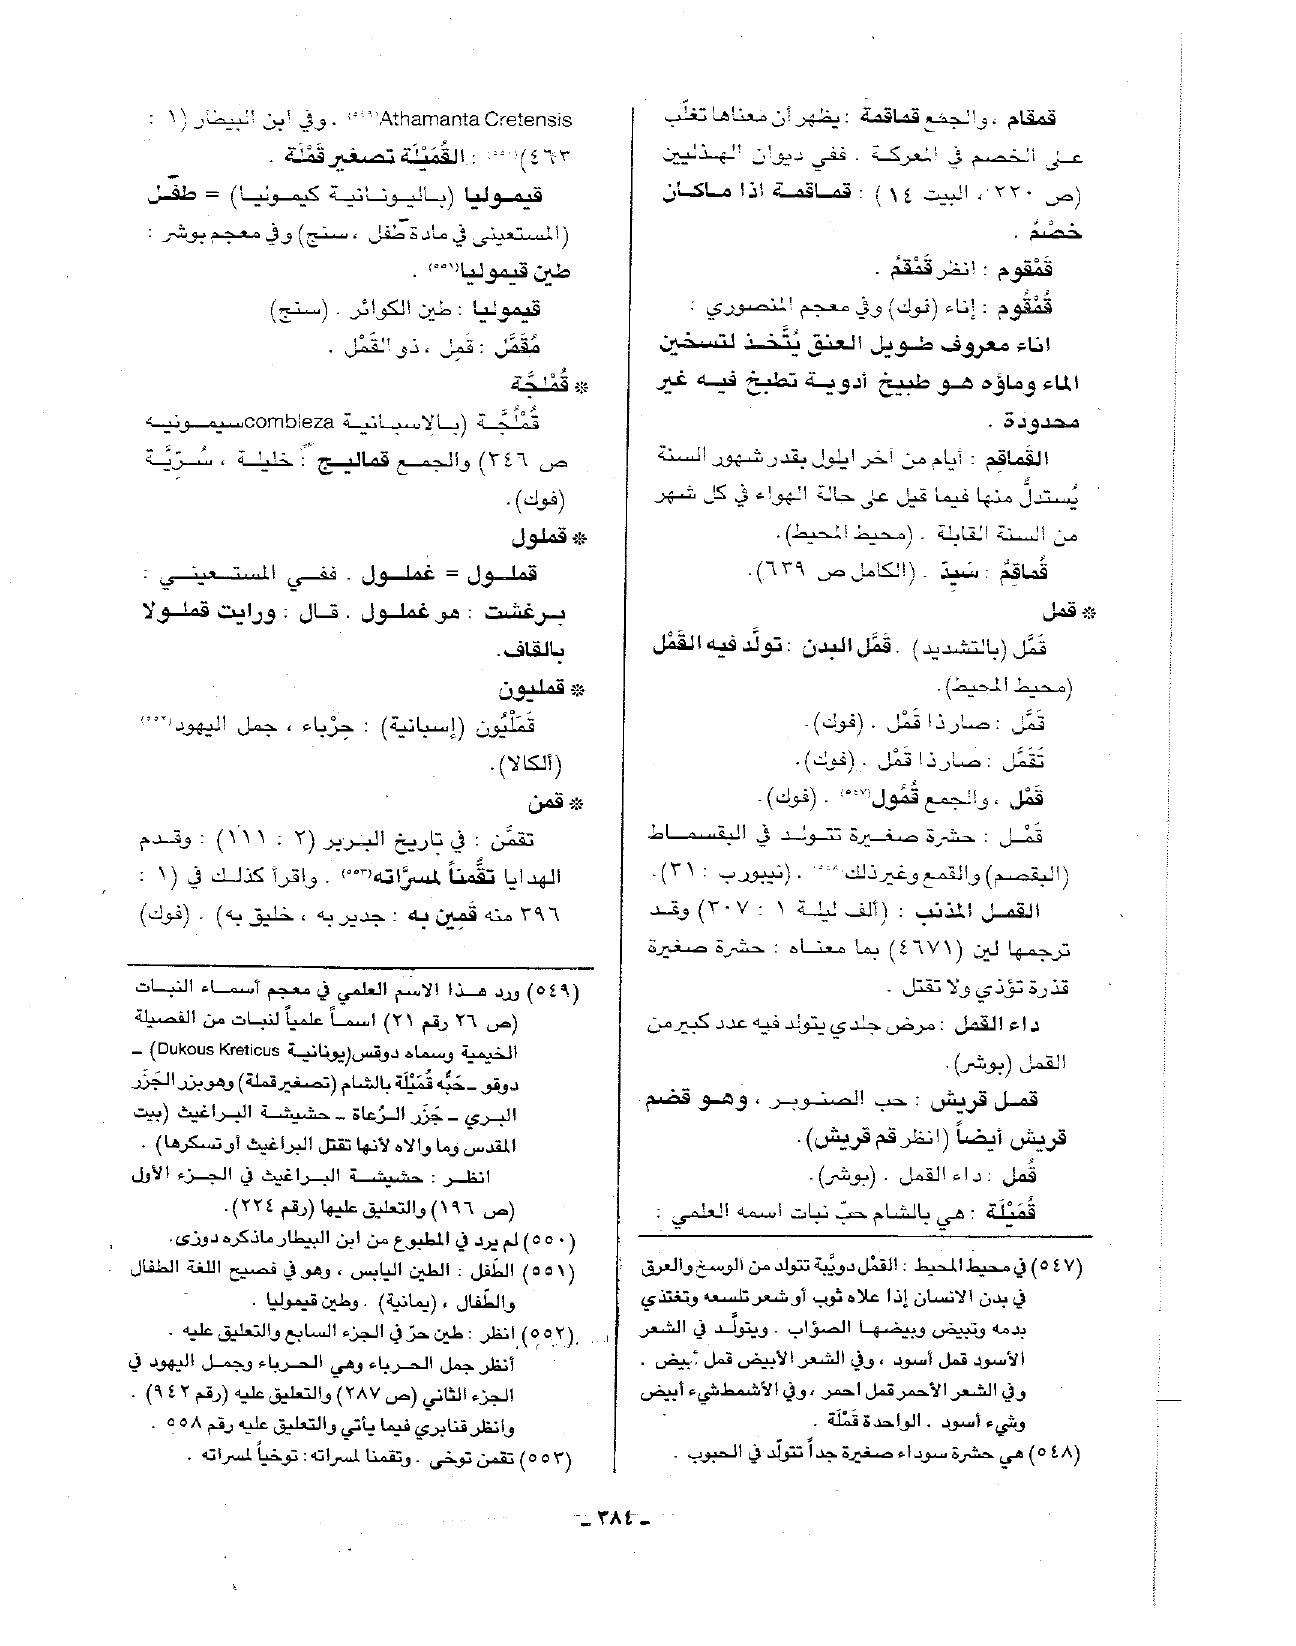 قمقام ، والجمع قماقمة : يظهر أن معناها تغلّب
على الخصم في المعركة . ففي ديوان الهذليين
(ص ٢٢٠ ، البيت ١٤) : قماقمة اذا ماكان
خصْمُ .
قَمْقوم : انظر قَمْقَمُ .
قُمْقُوم : إناء (فوك) وفي معجم المنصوري :
اناء معروف طويل العنق يُتَّخذ لتسخين
الماء وماؤه هو طبيخ أدوية تطبخ فيه غير
محدودة .
القَماقم : أيام من آخر ايلول بقدر شهور السنة
يُستدلّ منها فيما قيل على حالة الهواء في كل شهر
من السنة القابلة . (محيط المحيط).
قُماقِمُ : سَيِدّ . (الكامل ص ٦٣٩).
* قمل
قَمَّل (بالتشديد) . قَمَّل البدن : تولَّد فيه القَمْل
(محيط المحيط).
قَمَّل : صار ذا قَمْل . (فوك).
تَقَمَّل : صار ذا قَمْل . (فوك).
قَمْل ، والجمع قُمُول(٥٤٧) . (فوك).
قَمْل : حشرة صغيرة تتولد في البقسماط
(البقصم) والقمع وغير ذلك(٥٤٨) . (نيبورب : ٣١).
القمل المذنب : (ألف ليلة ١ : ٣٠٧) وقد
ترجمها لين (٤٦٧١) بما معناه : حشرة صغيرة
قذرة تؤذي ولا تقتل .
داء القمل : مرض جلدي يتولد فيه عدد كبير من
القمل (بوشر).
قمل قريش : حب الصنوبر ، وهو قضم
قريش أيضاً (انظر قم قريش).
قُمل : داء القمل . (بوشر).
قُمَيْلَة : هي بالشام حبّ نبات اسمه العلمي :
(٥٤٧) في محيط المحيط : القمْل دويّبة تتولد من الوسخ والعرق
في بدن الانسان إذا علاه ثوب أو شعر تلسعه وتغتذي
بدمه وتبيض وبيضها الصؤاب . ويتولَّد في الشعر
الأسود قمل أسود ، وفي الشعر الأبيض قمل أبيض .
وفي الشعر الأحمر قمل احمر ، وفي الأشمط شيء أبيض
وشيء أسود . الواحدة قَمْلة .
(٥٤٨) هي حشرة سوداء صغيرة جداً تتولّد في الحبوب .
Athamanta Cretensis(٥٤٩) . وفي ابن البيطار (١ :
٤٦٣)(٥٥٠) : القُمَيْلَة تصغير قَمْلَة .
قيموليا (باليونانية كيموليا) = طَفَل
(المستعيني في مادة طَفل ، سنج) وفي معجم بوشر :
طين قيموليا(٥٥١) .
قيموليا : طين الكوائر . (سنج)
مُقَمَّل : قَمِل ، ذو القَمْل .
* قُمْلجَّة
قُمُلْجَّة (بالاسبانية combleza سيمونيه
ص ٣٤٦) والجمع قماليج : خليلة ، سُرّيَّة
(فوك).
* قملول
قملول = غملول . ففي المستعيني :
برغشت : هو غملول . قال : ورايت قملولا
بالقاف.
* قمليون
قَمَلْيُون (إسبانية) : حِرْباء ، جمل اليهود(٥٥٢)
(ألكالا).
* قمن
تقمَّن : في تاريخ البربر (٢ : ١١١) : وقدم
الهدايا تقُّمناً لمسرَّاته(٥٥٣) . واقرأ كذلك في (١ :
٣٩٦ منه قَمِين به : جدير به ، خليق به) . (فوك)
(٥٤٩) ورد هذا الاسم العلمي في معجم أسماء النبات
(ص ٢٦ رقم ٢١) اسماً علمياً لنبات من الفصيلة
الخيمية وسماه دوقس (يونانية Dukous Kreticus) ـ
دوقو ـ حَبُّه قُمَيْلَة بالشام (تصغير قملة) وهو بزر الجَزَر
البري ـ جَزَر الرُعاة ـ حشيشة البراغيث (بيت
المقدس وما والاه لأنها تقتل البراغيث أو تسكرها) .
انظر : حشيشة البراغيث في الجزء الأول
(ص ١٩٦) والتعليق عليها (رقم ٢٢٤).
(٥٥٠) لم يرد في المطبوع من ابن البيطار ماذكره دوزي.
(٥٥١) الطَفل : الطين اليابس ، وهو في فصيح اللغة الطفال
والطُفال ، (يمانية) . وطين قيموليا .
(٥٥٢) انظر : طين حرّ في الجزء السابع والتعليق عليه .
أنظر جمل الحرباء وهي الحرباء وجمل اليهود في
الجزء الثاني (ص ٢٨٧) والتعليق عليه (رقم ٩٤٢) .
وانظر قنابري فيما يأتي والتعليق عليه رقم ٥٥٨
(٥٥٣) تقمن توخى . وتقمنا لمسراته : توخياً لمسراته .
ـ ٣٨٤ ـ